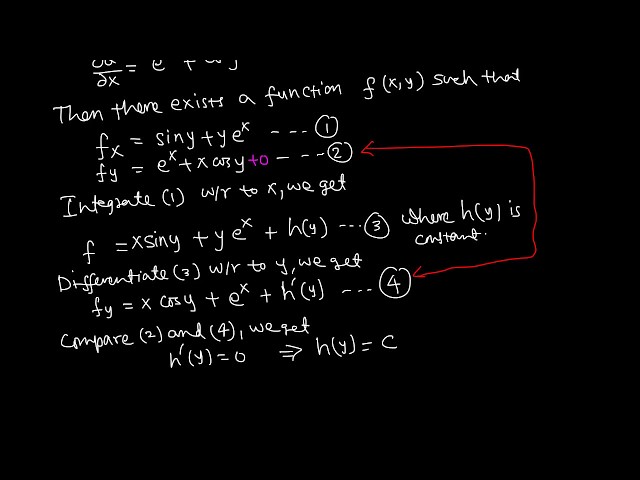 ∂x = e + cos y
Then there exists a function f(x,y) such that
fx = siny + y e^x ---- ①
fy = e^x + x cosy +0 ----- ②
Integrate (1) w/r to x, we get
f = xsiny + y e^x + h(y) --- ③ where h(y) is
constant.
Differentiate (3) w/r to y, we get
fy = x cosy + e^x + h'(y) --- ④
Compare (2) and (4), we get
h'(y) = 0 ⇒ h(y) = C